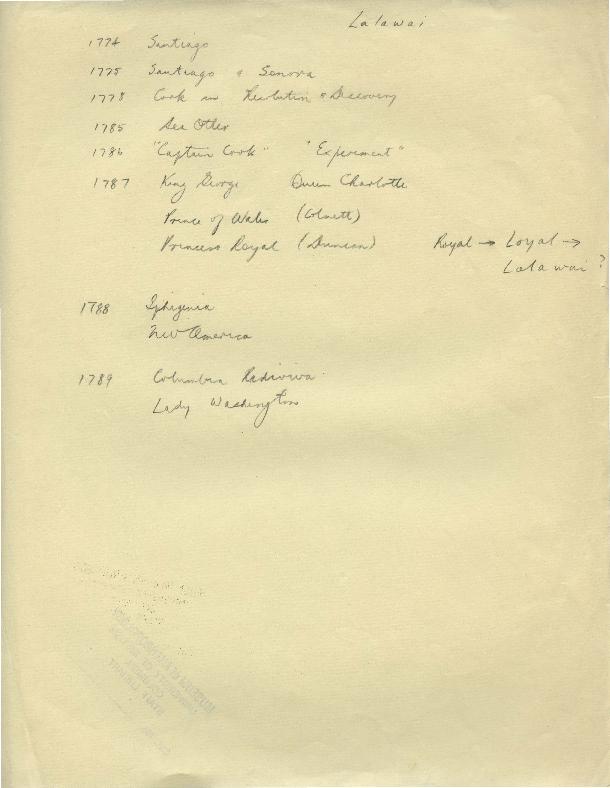 Lalawai
1774 Santiago
1775 Santiago & Sonora
1778 Cook in Resolution & Discovery
1785 Sea Otter
1786 "Captain Cook" "Experiment"
1787 King George Queen Charlotte
Prince of Wales (Colnett)
Princess Royal (Duncan) Royal → Loyal →
Lalawai ?
1788 Iphigenia
New America
1789 Columbia Rediviva
Lady Washington
MUSEUM OF ANTHROPOLOGY
UNIVERSITY OF BRITISH
COLUMBIA